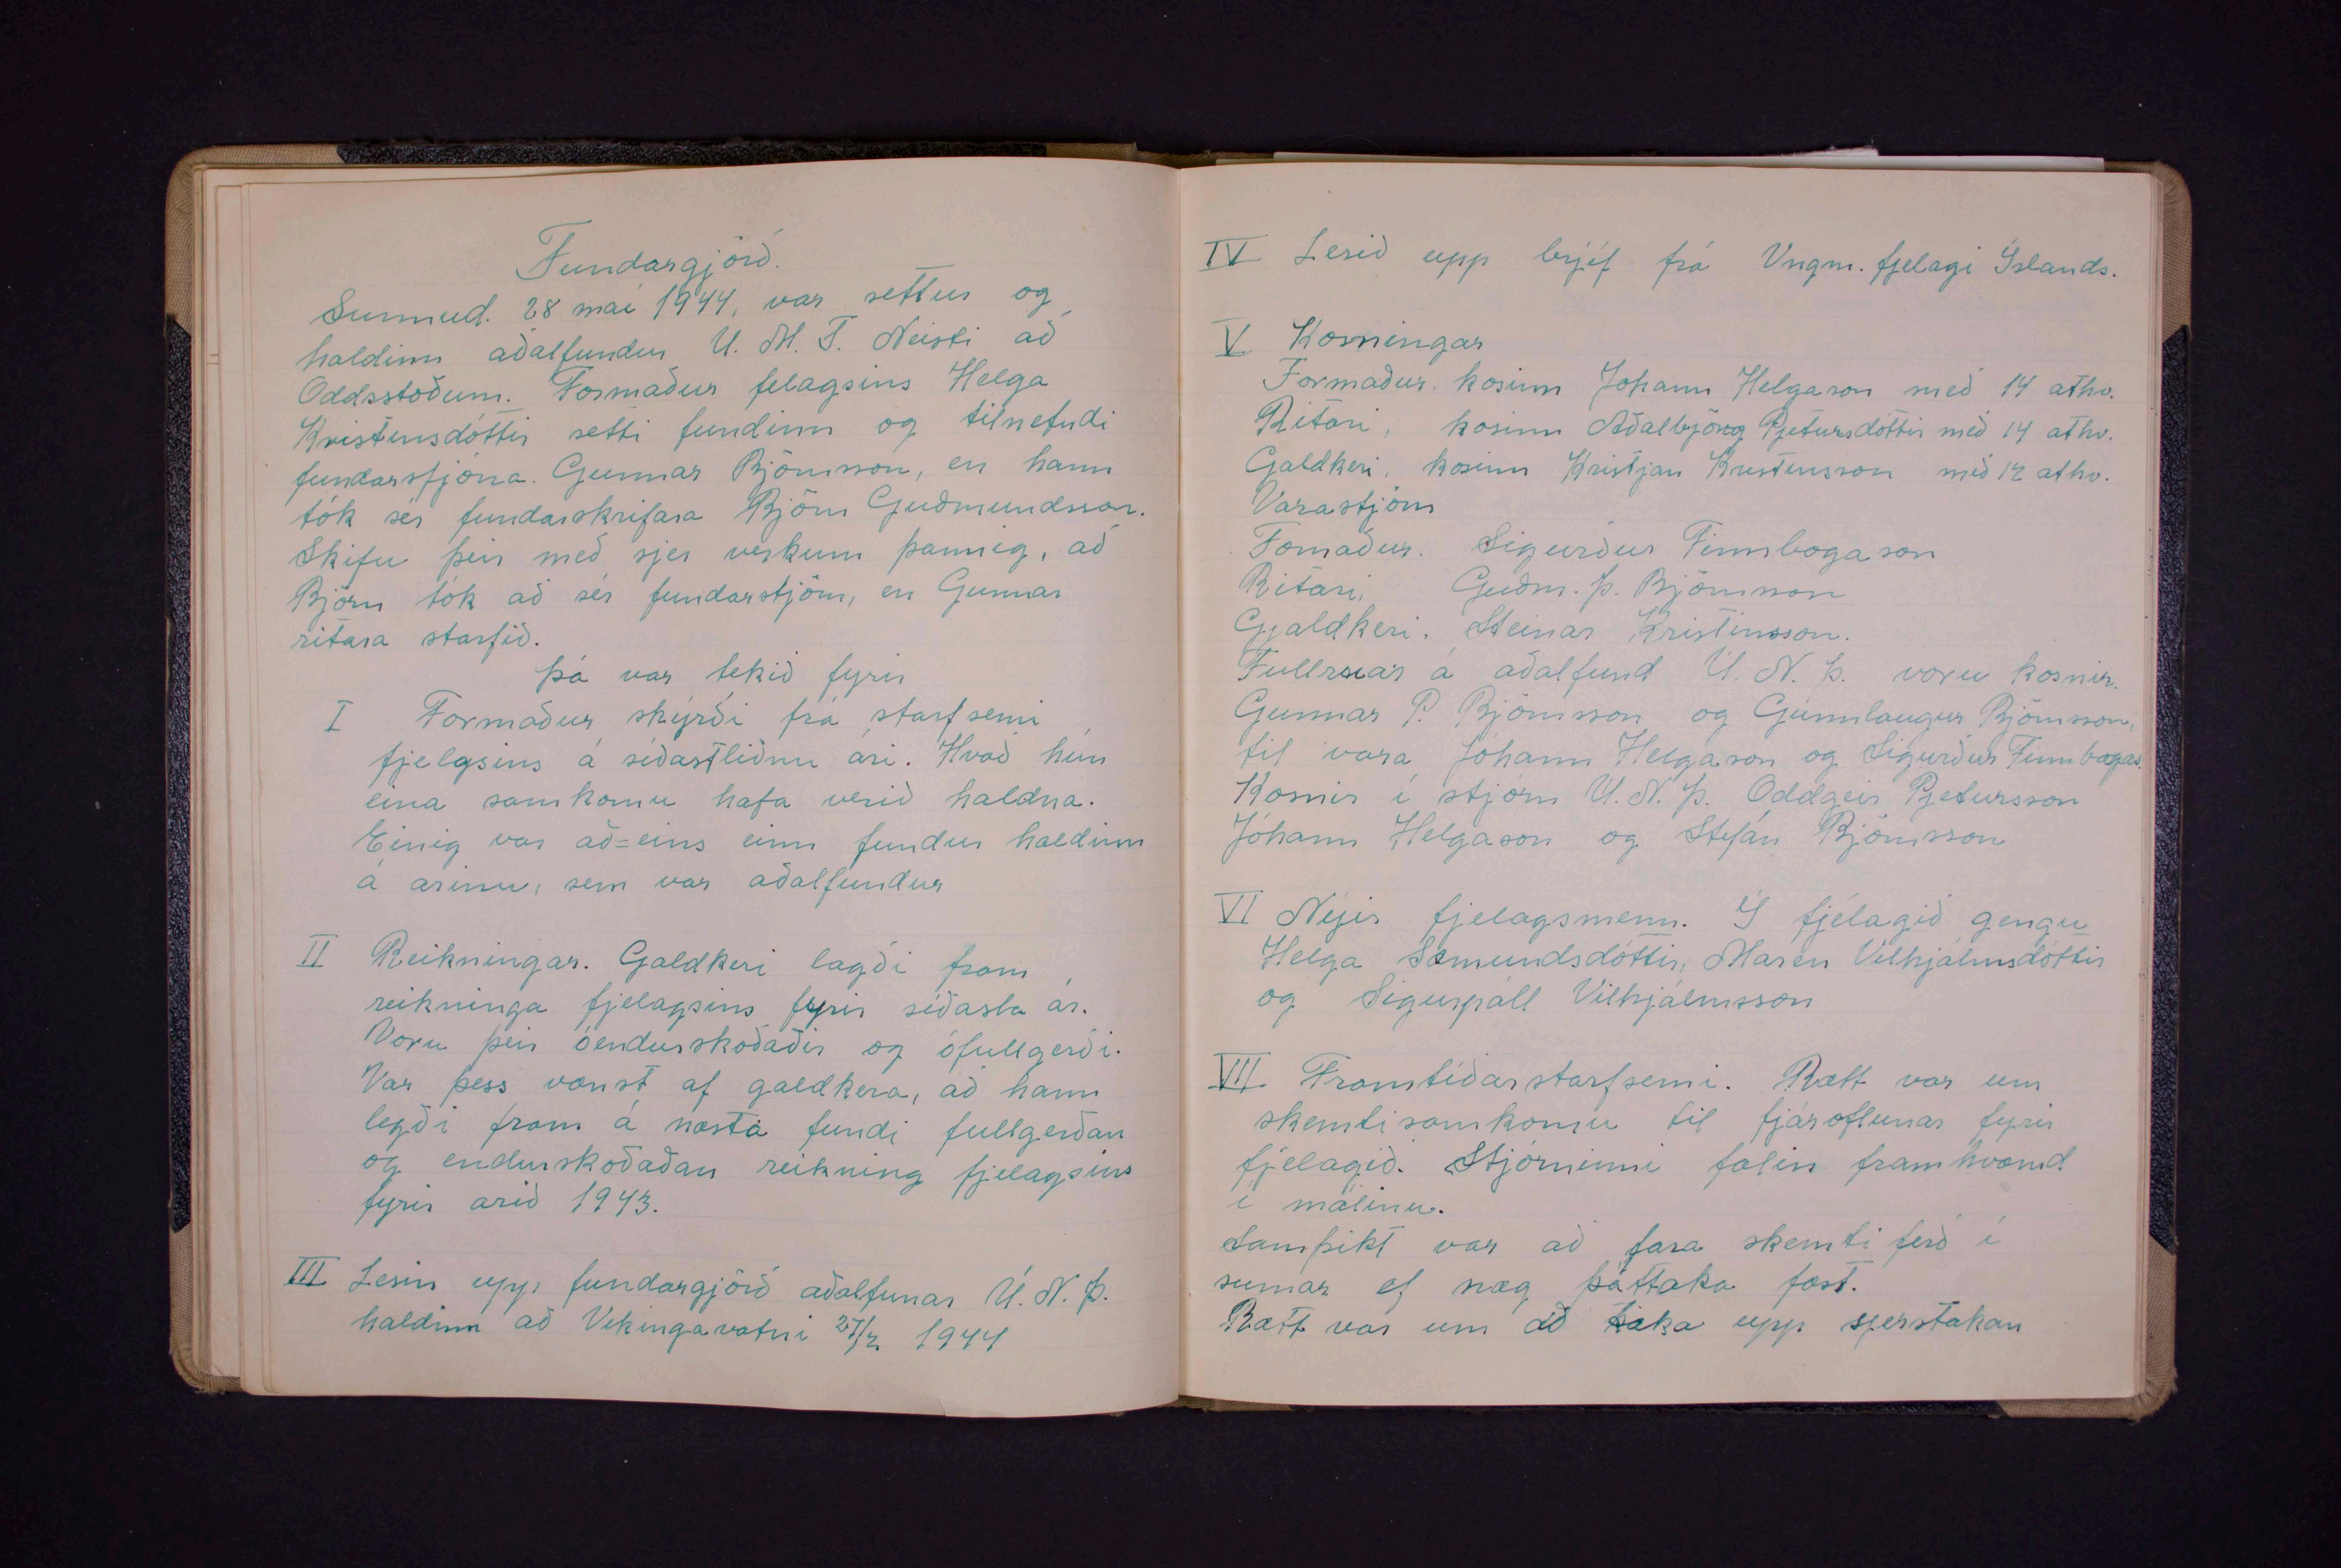 Fundargjörð.
Sunnud. 28 mai 1944, var settur og
haldinn aðalfundur U. M. F. Neisti að
Oddsstöðum. Formaður felagsins Helga
Kristinsdóttir setti fundinn og tilnefndi
fundarstjóra. Gunnar Björnsson, en hann
tók sér fundarskrifara Björn Guðmundsson.
Skifu þeir með sjer verkum þannig, að
Björn tók að sér fundarstjórn, en Gunnar
ritara starfið.
Þá var tekið fyrir
I Formaður skýrði frá starfsemi
fjelgsins á síðastliðnu ári. Hvað hún
eina samkomu hafa verið haldna.
Einig var að=eins einn fundur haldinn
á arinu, sem var aðalfundur
II Reikningar. Galdkeri lagði fram
reikninga fjelagsins fyrir síðasta ár.
Voru þeir óendurskoðaðir og ófullgerði.
Var þess vænst af galdkera, að hann
legði fram á næsta fundi fullgerðan
og endurskoðaðan reikning fjelagsins
fyrir arið 1943.
III Lesin upp fundargjörð aðalfunar U. N. Þ.
haldinn að Vikingavatni 27/2 1944
IV Lesið upp brjéf frá Ungm. fjelagi Íslands.
V Kosningar
Formaður. kosinn Johann Helgason með 14 athv.
Ritari, kosinn Aðalbjörg Pjetursdóttir með 14 athv.
Galdkeri, kosinn Kristjan Kristinsson með 12 athv.
Varastjórn
Fomaður. Sigurður Finnbogason
Ritari, Guðm. Þ. Björnsson
Gjaldkeri. Steinar Kristinsson.
Fullruar á aðalfund U. N. Þ. voru kosnir.
Gunnar P. Björnsson og Gunnlaugur Björnsson,
til vara Jóhann Helgason og Sigurður Finnbogas.
Kosnir í stjórn U. N. Þ. Oddgeir Pjetursson
Jóhann Helgason og Stefán Björnsson
VI Nýir fjelagsmenn. Í fjélagið gengu
Helga Sæmundsdóttir, Maren Vilhjálmsdóttir
og Sigurpáll Vilhjálmsson
VII Framtíðarstarfsemi. Rætt var um
skemtisamkomu til fjáröflunar fyrir
fjelagið. Stjórninni falin framhvæmd
í málinu.
Samþikt var að fara skemti ferð í
sumar ef næg þáttaka fæst.
Rætt var um að taka upp sjerstakan